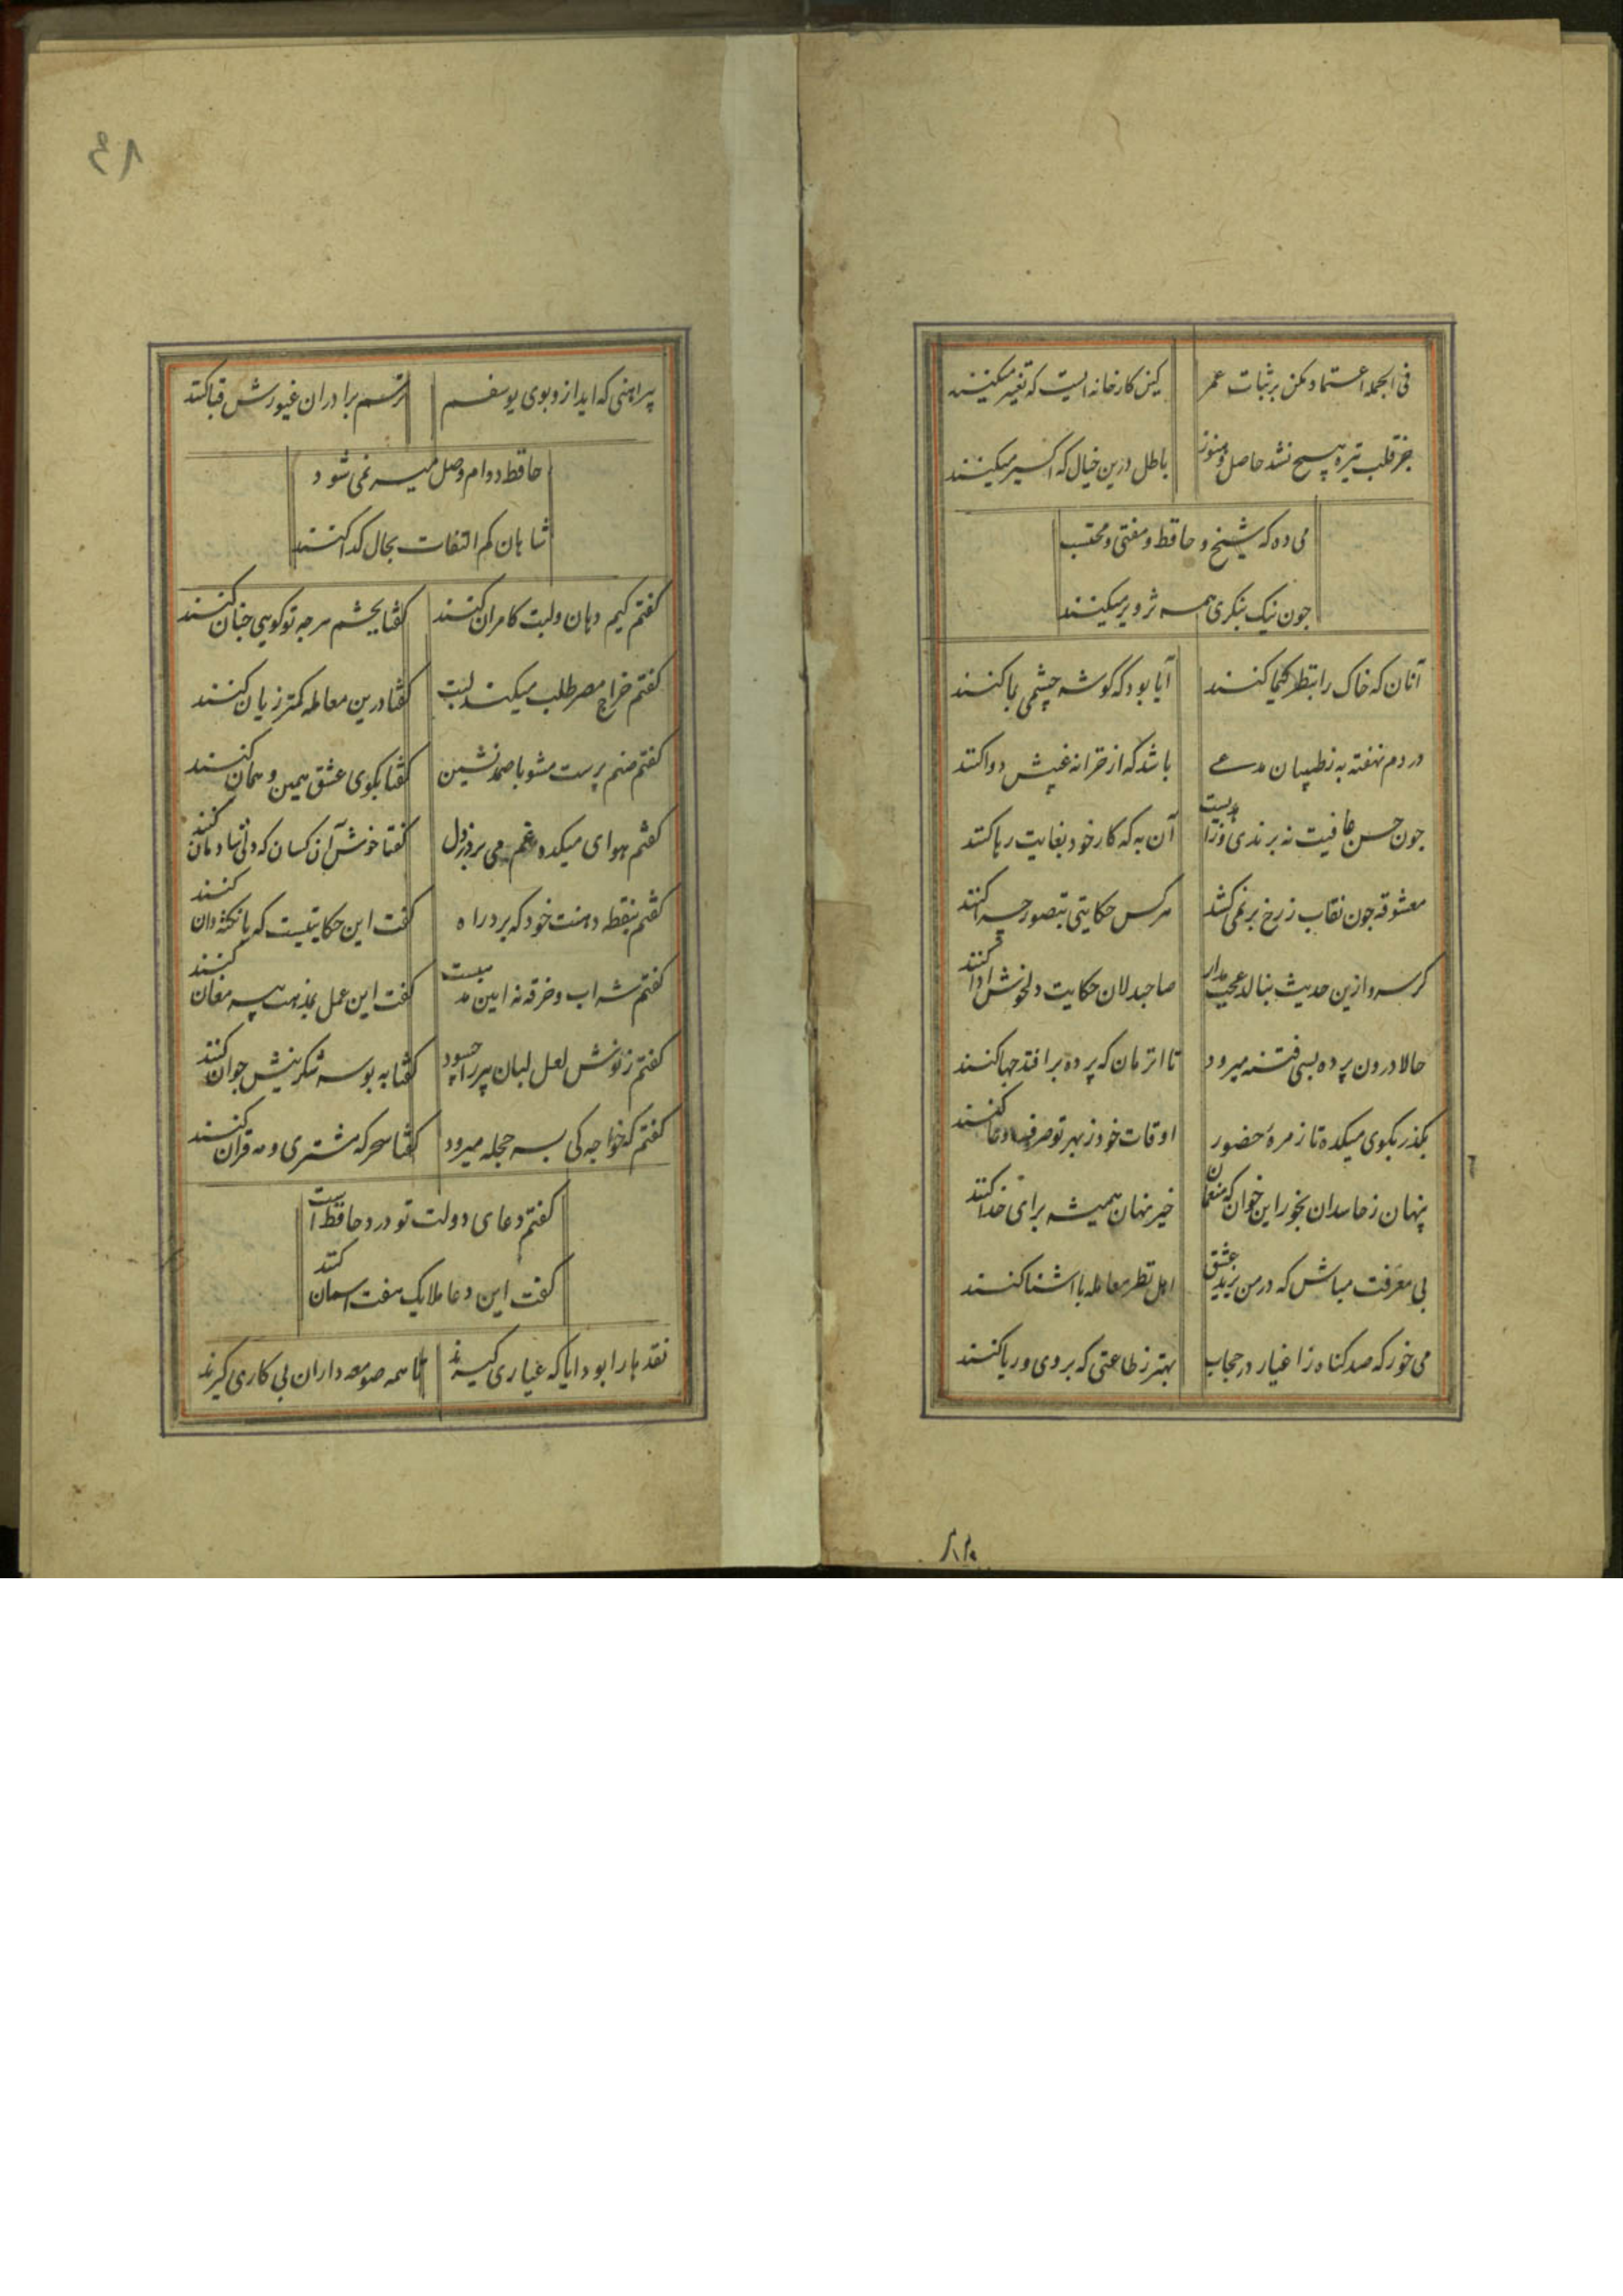 فی الجمله اعتماد مکن بر ثبات عمر
کین کارخانه ایست که تغییر میکنند
جز قلب تیره هیچ نشد حاصل و هنوز
باطل درین خیال که اکسیر میکنند
می ده که شیخ و حافظ و مفتی و محتسب
جون نیک بنکری همه تزویر میکنند
آنان که خاک را بنظر کیمیا کنند
آیا بود که کوشه چشمی بما کنند
دردم نهفته به ز طبیبان مدعی
باشد که از خزانه غیبش دوا کنند
جون حسن عاقبت نه برندی و زاهدیست
آن به که کار خود بعنایت رها کنند
معشوقه جون نقاب ز رخ بر نمی کشد
هر کس حکایتی بتصور جرا کنند
کر سرو ازین حدیث بنالد عجب مدار
صاحبدلان حکایت دل خوش ادا کنند
حالا درون پرده بسی فتنه میرود
تا انزمان که پرده برافتد جها کنند
بکذر بکوی میکده تا زمرهٔ حضور
اوقات خود ز بهر تو صرف دعا کنند
پنهان ز حاسدان بخور این خوان که منعمان
خیر نهان همیشه برای خدا کنند
بی معرفت مباش که در من یزید عشق
اهل نظر معامله با اشنا کنند
می خور که صد کناه ز اغیار در حجاب
بهتر ز طاعتی که بروی و ریا کنند
۴۸
پیراهنی که اید ازو بوی یوسفم
ترسم برادران غیورش قبا کنند
حافظ دوام وصل میسر نمی شود
شاهان کم التفات بحال کدا کنند
کفتم کیم دهان و لبت کامران کنند
کفتا بچشم هر جه تو کویی جنان کنند
کفتم خراج مصر طلب میکند لبت
کفتا درین معامله کمتر زیان کنند
کفتم صنم پرست مشو با صمد نشین
کفتا بکوی عشق همین و همان کنند
کفتم هوای میکده غم می برد ز دل
کفتا خوش آن کسان که دلی شادمان کنند
کفتم بنقطه دهنت خود که برد راه
کفت این حکایتیست که با نکته دان کنند
کفتم شراب و خرقه نه ایین مذهبست
کفت این عمل بمذهب پیر مغان کنند
کفتم ز نوش لعل لبان پیر را چه سود
کفتا به بوسه شکرینش جوان کنند
کفتم که خواجه کی بسر حجله میرود
کفتا سحر که مشتری و مه قران کنند
کفتم دعای دولت تو ورد حافظ است
کفت این دعا ملایک هفت اسمان کنند
نقدها را بود ایا که عیاری کیرند
تا همه صومعه داران پی کاری کیرند